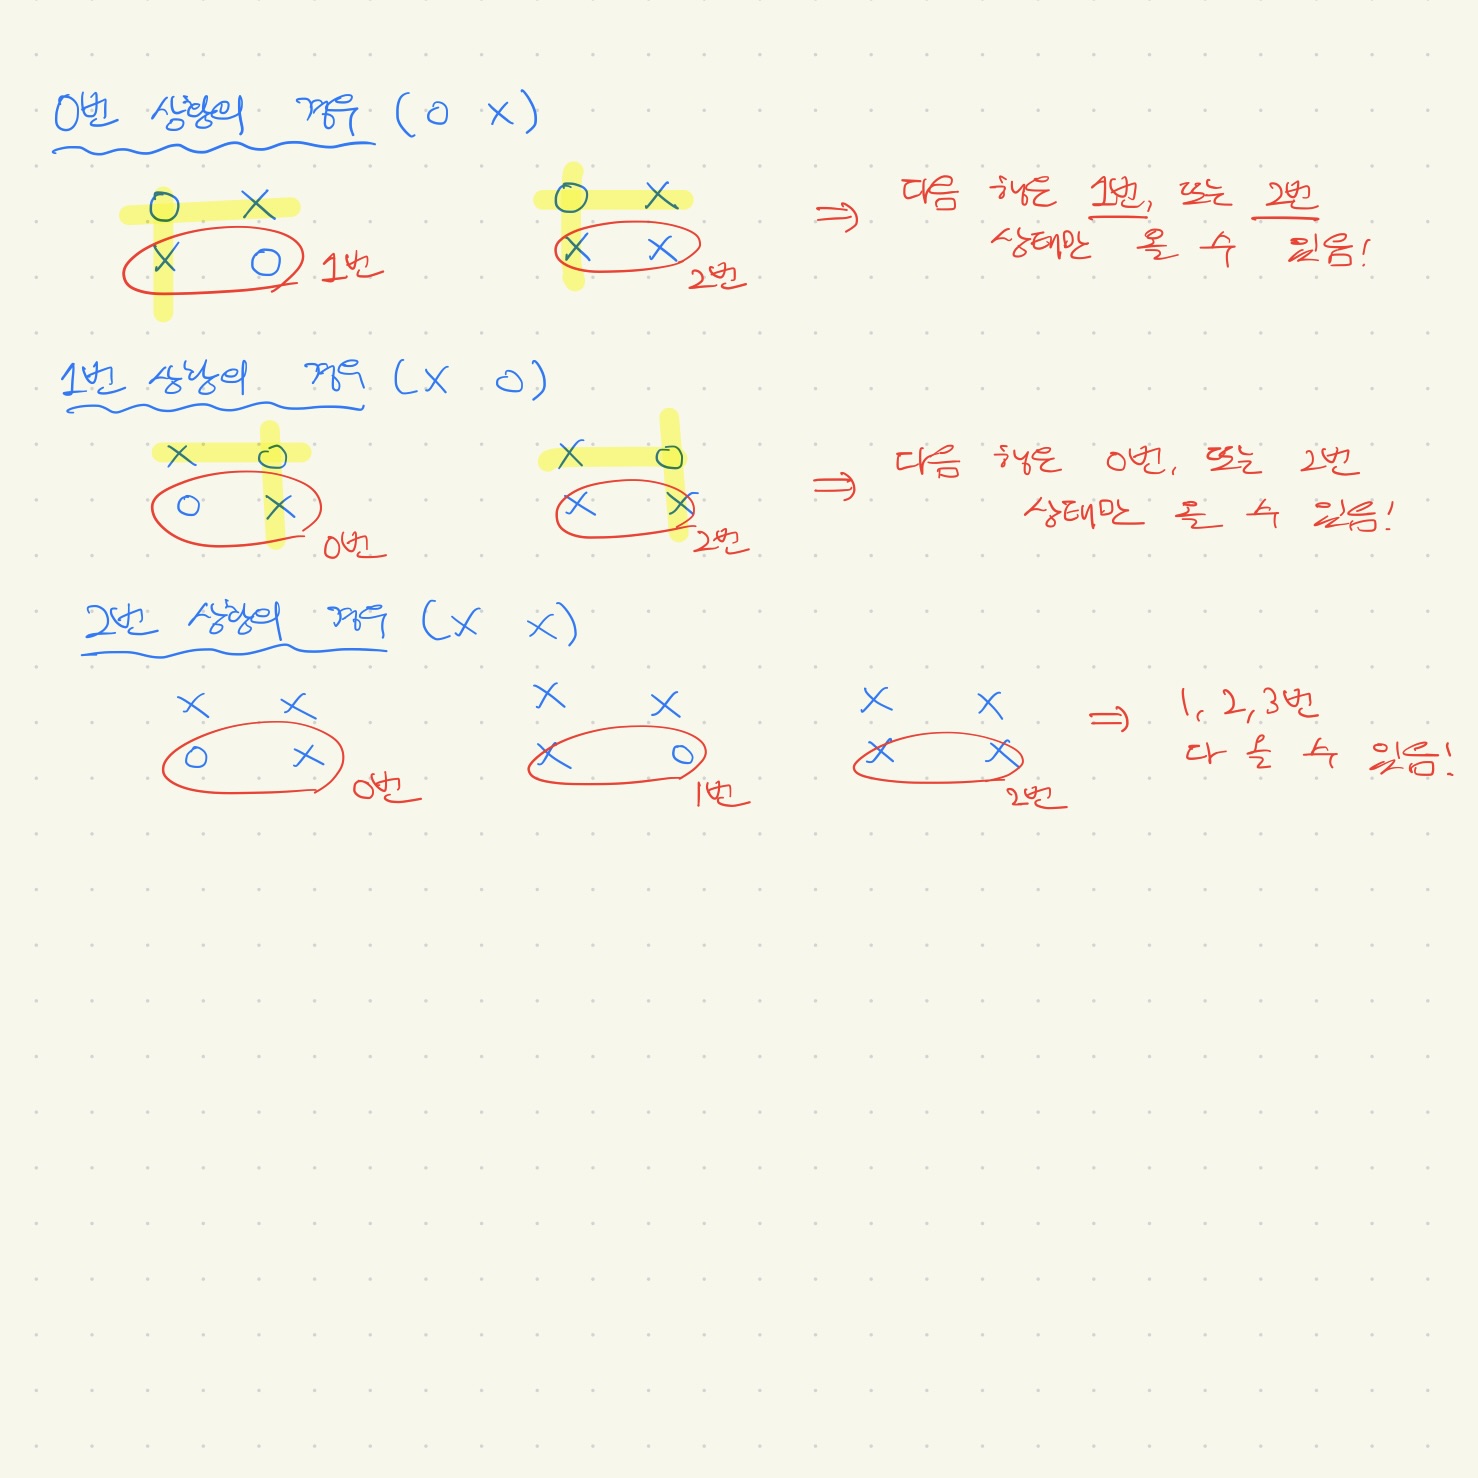 0번 상황의 경우 (O X)
O X
X O 1번
O X
X X 2번
⇒ 다음 행은 1번, 또는 2번
상태만 올 수 있음!
1번 상황의 경우 (X O)
X O
O X 0번
X O
X X 2번
⇒ 다음 행은 0번, 또는 2번
상태만 올 수 있음!
2번 상황의 경우 (X X)
X X
O X 0번
X X
X O 1번
X X
X X 2번
⇒ 1, 2, 3번
다 올 수 있음!